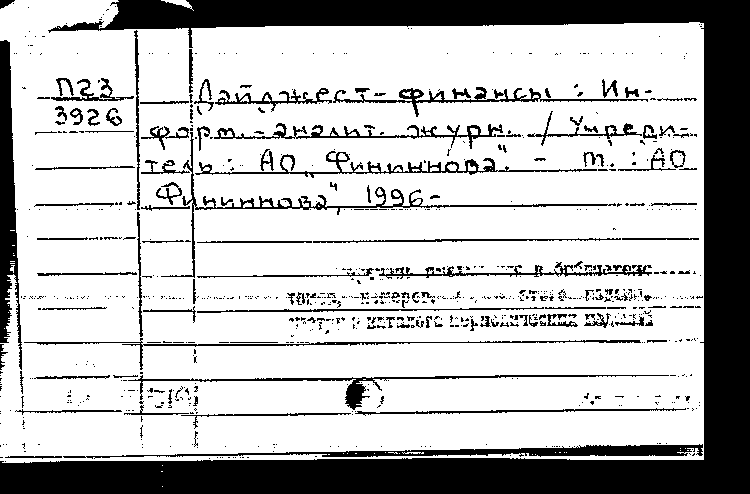 П23
3926
Дайджест-финансы : Ин-
форм.-аналит. журн. / Учреди-
тель : АО „Фининнова". - М. : АО
„Фининнова", 1996-
в библиотеке
томов, номеров, этого издан.
смотри в каталоге периодических изданий